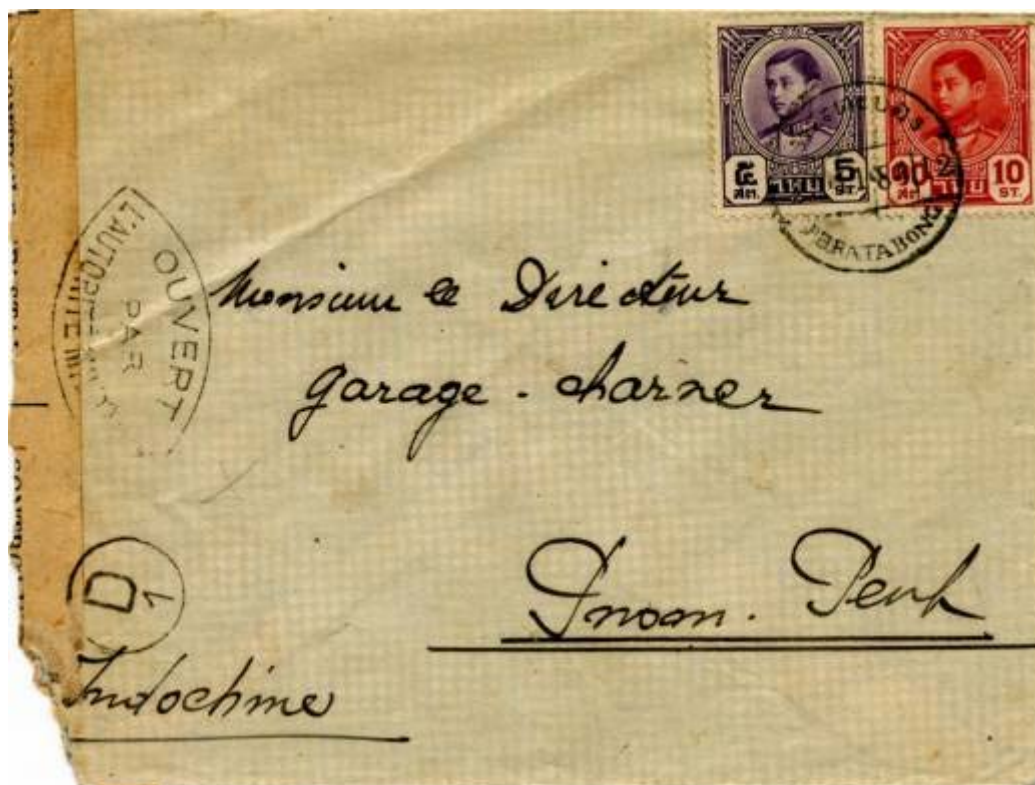 ๕ 5
สต. ไทย ST.
๑๐ 10
สต. ไทย ST.
PBRATABONG
OUVERT
PAR
L'AUTORITE
Monsieur le Directeur
garage - charner
Pnom. Penh
D
1
Indochine